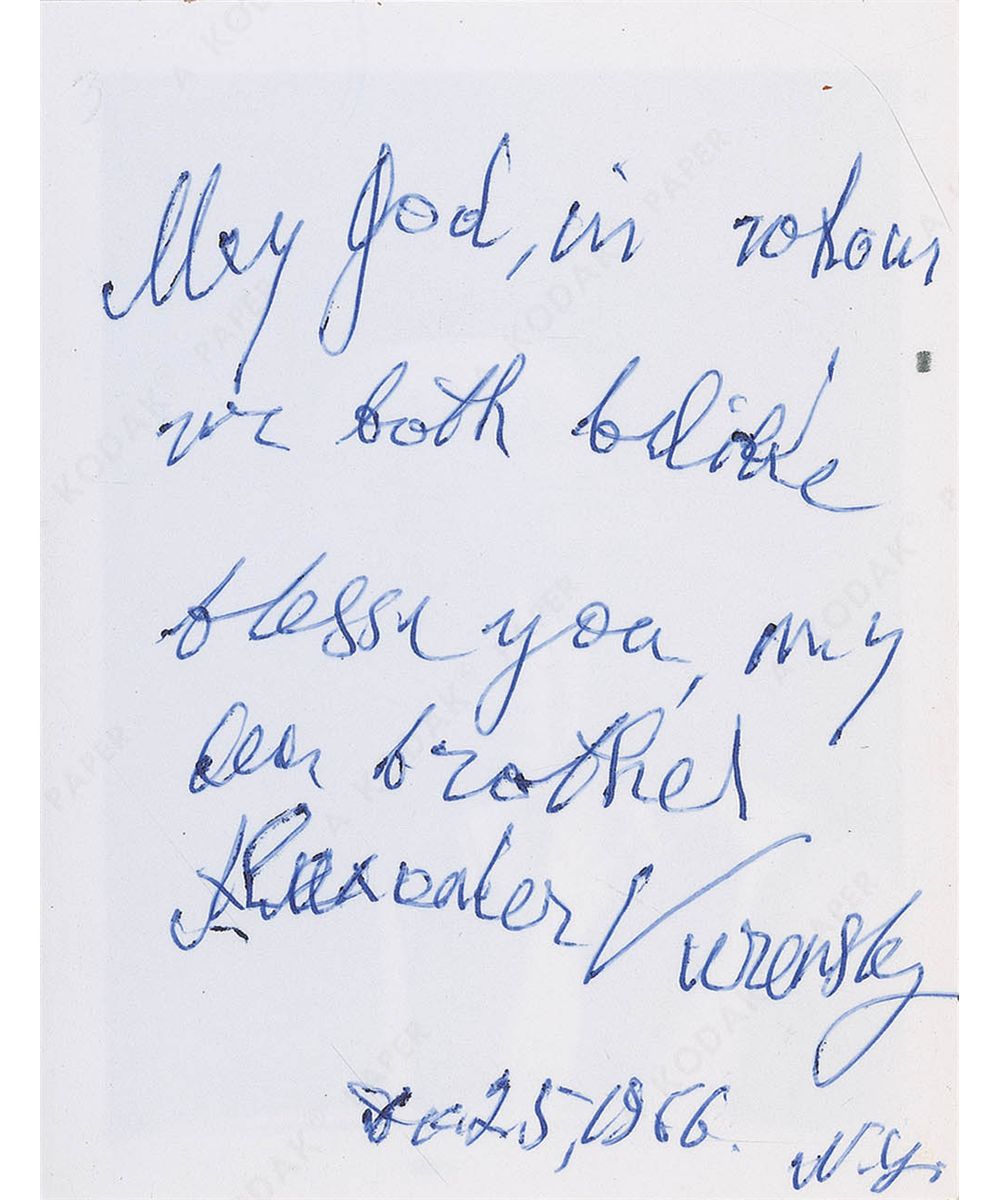 May God, in whom
we both believe
blesse you, my
dear brother
Alexander Kerensky
25, 1966.
N.Y.